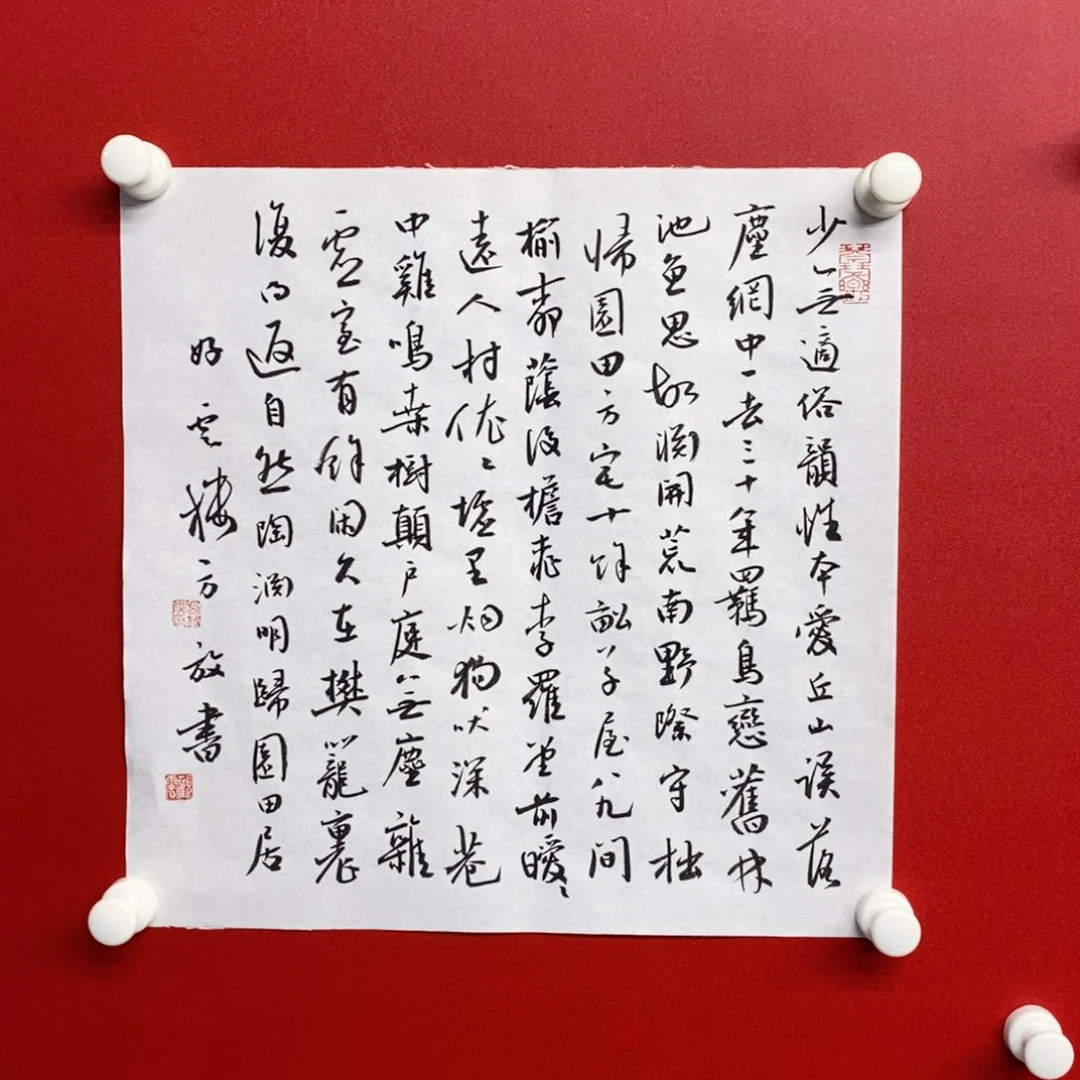 少無適俗韻性本愛丘山誤落
塵網中一去三十年羈鳥戀舊林
池魚思故淵開荒南野際守拙
歸園田方宅十餘畝草屋八九間
榆柳蔭後檐桃李羅堂前曖曖
遠人村依依墟里烟狗吠深巷
中雞鳴桑樹顛戶庭無塵雜
虛室有餘閑久在樊籠裏
復得返自然陶淵明歸園田居
好雲樓方放書